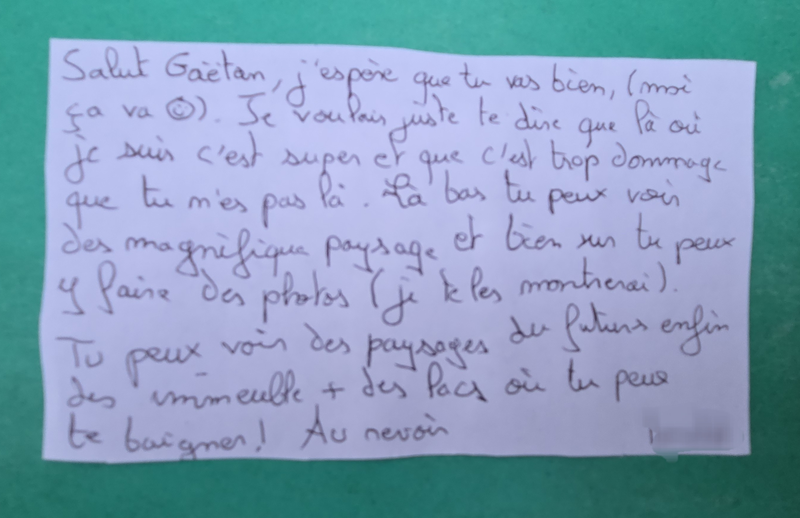 Salut Gaëtan, j'espère que tu vas bien, (moi
ça va ☺). Je voulais juste te dire que là où
je suis c'est super et que c'est trop dommage
que tu n'es pas là. Là bas tu peux voir
des magnifique paysage et bien sur tu peux
y faire des photos (je te les montrerai).
Tu peux voir des paysages du futurs enfin
des immeuble + des lacs où tu peux
te baigner! Au revoir